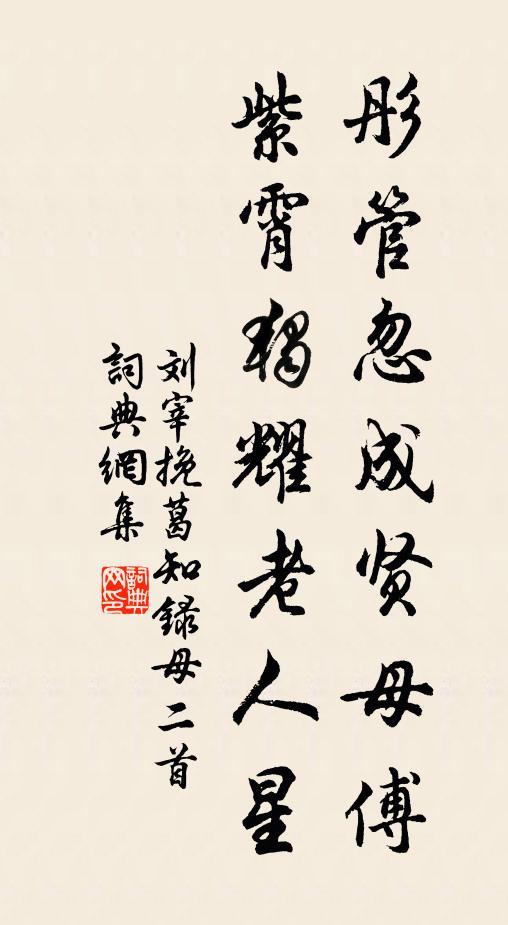 彤管忽成贤母傅
紫霄独耀老人星
刘宰挽葛知録母二首
詞典網集
詞典網印